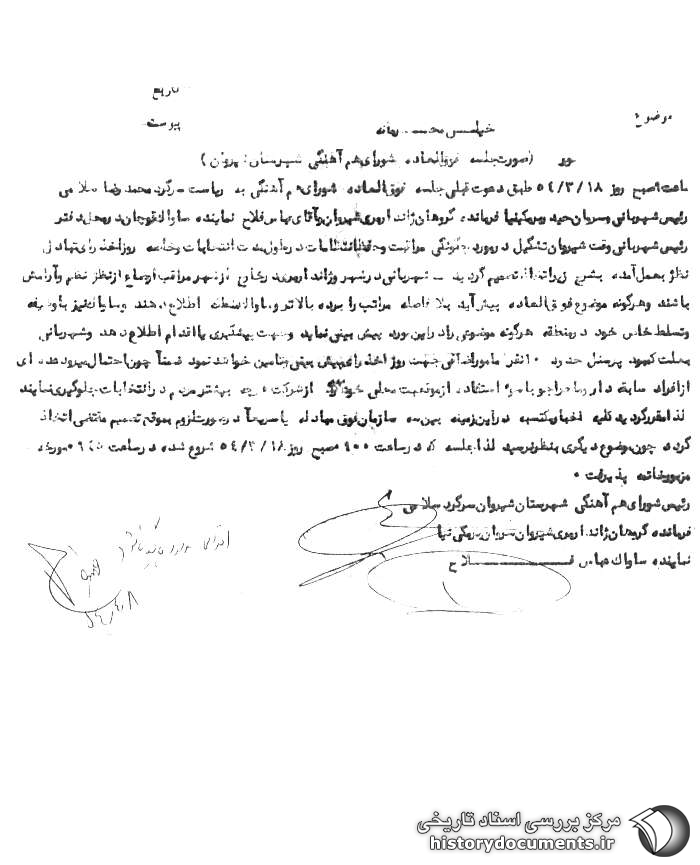 تاریخ
موضوع
پیوست
خیلی محرمانه
(صورتجلسه فوق‌العاده شورای هم آهنگی شهرستان شیروان)
ساعت ۹ صبح روز ۵۴/۳/۱۸ طبق دعوت قبلی جلسه فوق العاده شورای هم آهنگی به ریاست سرگرد محمد رضا سلامی
رئیس شهربانی و سروان فرمانده گروهان ژاندارمری شیروان و آقای عباس فلاح نماینده ساواك قوچان در محل دفتر
رئیس شهربانی وقت شیروان تشکیل در مورد چگونگی مراقبت و در طول مدت انتخابات و خاصه روز اخذ رای تبادل
نظر بعمل آمده بشرح زیر اتخاذ تصمیم گردید ــ شهربانی در شهر و ژاندارمری در خارج از شهر مراقب اوضاع از نظر نظم و آرامش
باشند و هرگونه موضوع فوق العاده پیش آید بلا فاصله مراتب را برده بالاتر و ساواك منطقه اطلاع دهند و ساواك نیز با وظیفه
و تسلط خاص خود در منطقه هرگونه موضوعی را در این مورد پیش بینی نماید و جهت پیشگیری یا اقدام اطلاع دهد و شهربانی
بعلت کمبود پرسنل حدود ۱۰ نفر مامور اضافی جهت روز اخذ رای پیش بینی و تامین خواهد نمود ضمناً چون احتمال میرود عده ای
از افراد سابقه دار و ماجراجو با سوء استفاده از موقعیت محلی خود از شرکت هر چه بیشتر مردم در انتخابات جلوگیری نمایند
لذا مقرر گردید کلیه اخبار مکتسبه در این زمینه بین سه سازمان فوق مبادله یا سریعاً در صورت لزوم بموقع تصمیم مقتضی اتخاذ
گردد چون موضوع دیگری بنظر نرسید لذا جلسه که در ساعت ۹۰۰ صبح روز ۵۴/۳/۱۸ شروع شده در ساعت مورخه
مزبور خاتمه پذیرفت ۰
رئیس شورای هم آهنگی شهرستان شیروان سرگرد سلامی
فرمانده گروهان ژاندارمری شیروان سروان
نماینده ساواك عباس فلاح
مرکز بررسی اسناد تاریخی
historydocuments.ir